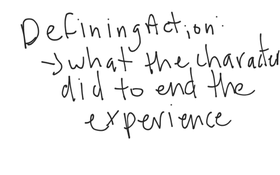 Defining Action:
→ what the character
did to end the
experience